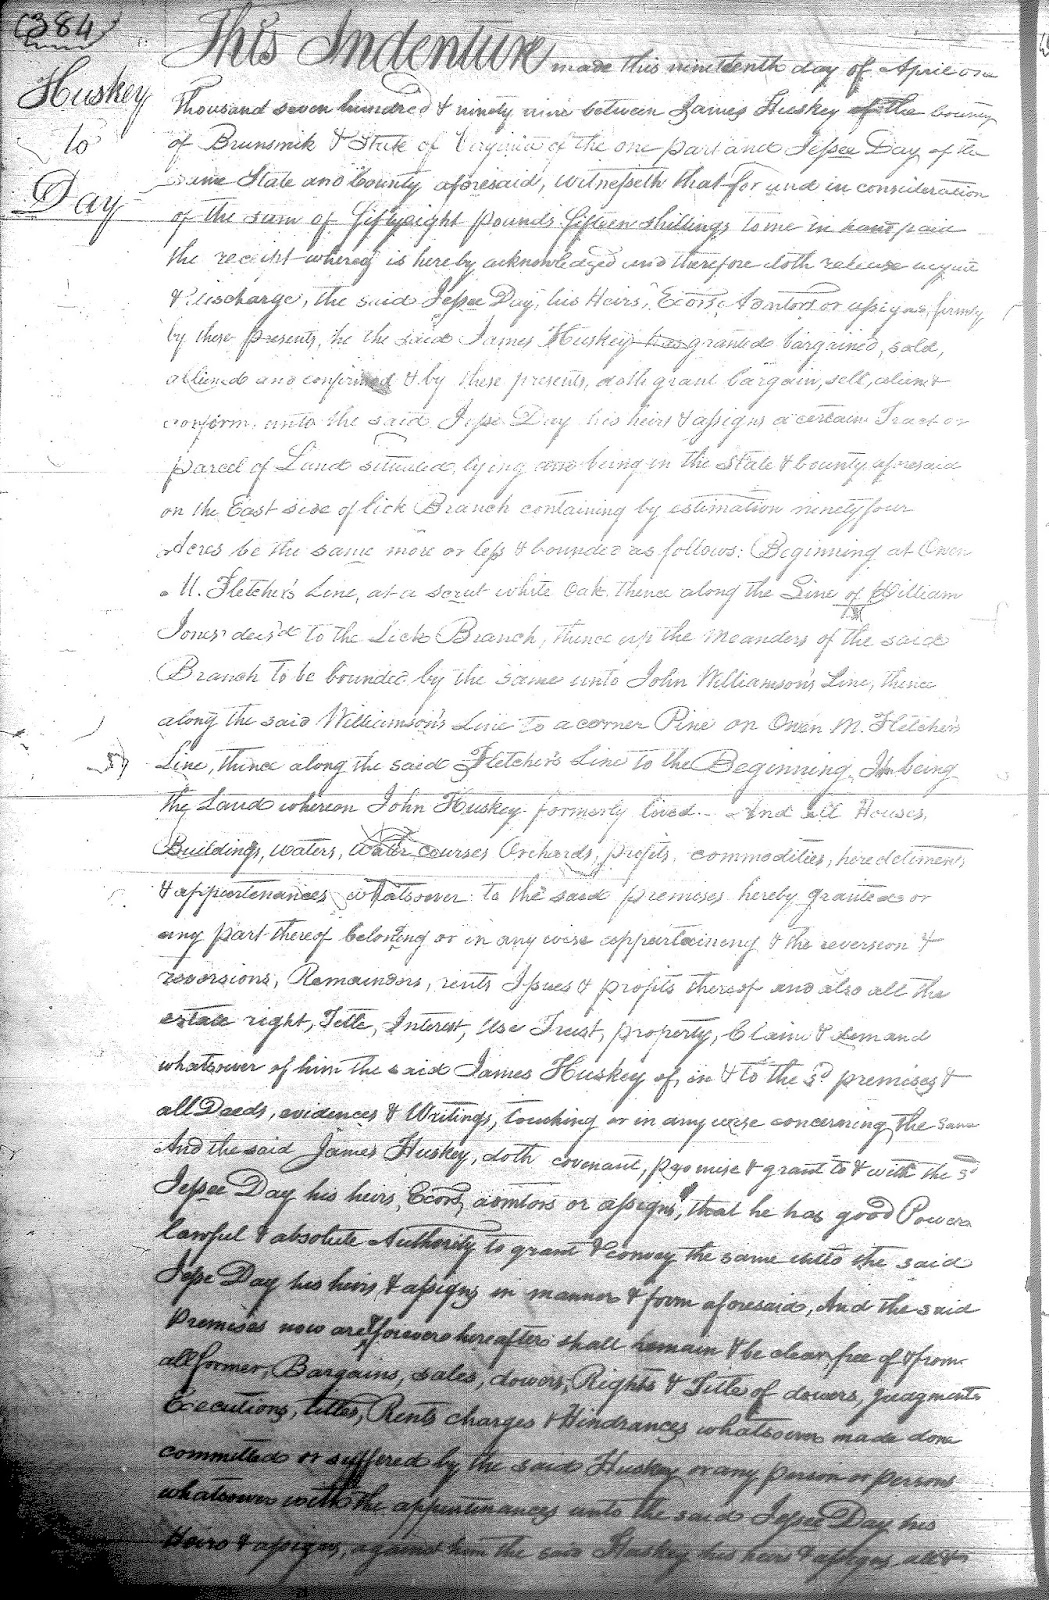 (384)
Huskey
to
Day
This Indenture made this nineteenth day of April one
thousand seven hundred & ninety nine between James Huskey of the County
of Brunswik & State of Virginia of the one part and Jessee Day of the
same State and County aforesaid, Witnesseth that for and in consideration
of the sum of fiftyeight pounds fifteen shillings to me in hand paid
the receipt whereof is hereby acknowledged and therefore doth release acquit
& discharge, the said Jessee Day, his Heirs, Exors, Admtors or assigns, firmly
by these presents, he the said James Huskey has granted bargained, sold,
aliened and confirmed & by these presents, doth grant bargain, sell, alien &
confirm unto the said Jesse Day his heirs & assigns a certain Tract or
parcel of Land situated, lying and being in the State & County aforesaid
on the East side of lick Branch containing by estimation ninetyfour
Acres be the same more or less & bounded as follows: Beginning at Owen
M. Fletcher's Line, at a scrut white Oak thence along the Line of William
Jones dec'd to the Lick Branch, thence up the meanders of the said
Branch to be bounded by the same unto John Williamson's Line, thence
along the said Williamson's Line to a corner Pine on Owen M. Fletcher's
Line, thence along the said Fletcher's Line to the Beginning, It being
the Land whereon John Huskey formerly lived.- And all Houses,
Buildings, waters, Water courses Orchards, profits, commodities, heredetiments
& appurtenances whatsoever to the said premises hereby granted or
any part thereof belonging or in any wise appertaining & the reversion &
reversions, Remainders, rents Issues & profits thereof and also all the
estate right, Title, Interest, Use Trust, property, Claim & demand
whatsover of him the said James Huskey of, in & to the sd premises &
all Deeds, evidences & Writings, touching or in any wise concerning the same
And the said James Huskey, doth covenant, promise & grant to & with the sd
Jessee Day his heirs, Exors, admtors or assigns, that he has good Power
lawful & absolute Authority to grant & convey the same unto the said
Jesse Day his heirs & assigns in manner & form aforesaid, And the said
Premises now are & forevere hereafter shall remain & be clear, free of & from
all former, Bargains, sales, dowers, Rights & Title of dowers, Judgments
Executions, titles, Rents charges & Hindrances whatsoever made done
committed or suffered by the said Huskey or any person or persons
whatsover with the appurtenances unto the said Jessee Day his
Heirs & assigns, against him the said Huskey his heirs & assigns all &